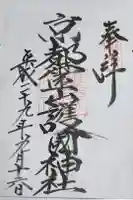 奉拝
京都霊山護國神社
平成二十九年九月十六日